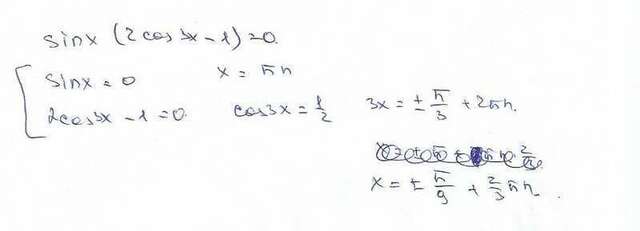 sinx (2cos3x-1)=0.
sinx=0 x=πn
2cos3x-1=0. cos3x=1/2 3x=±π/3+2πn.
x=±π/9+2/3πn.